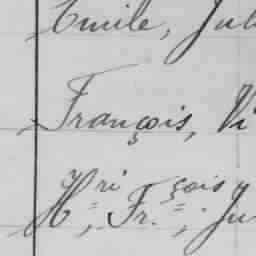 Emile, Jul
François, Vi
Hri, Fr.çois, Ju